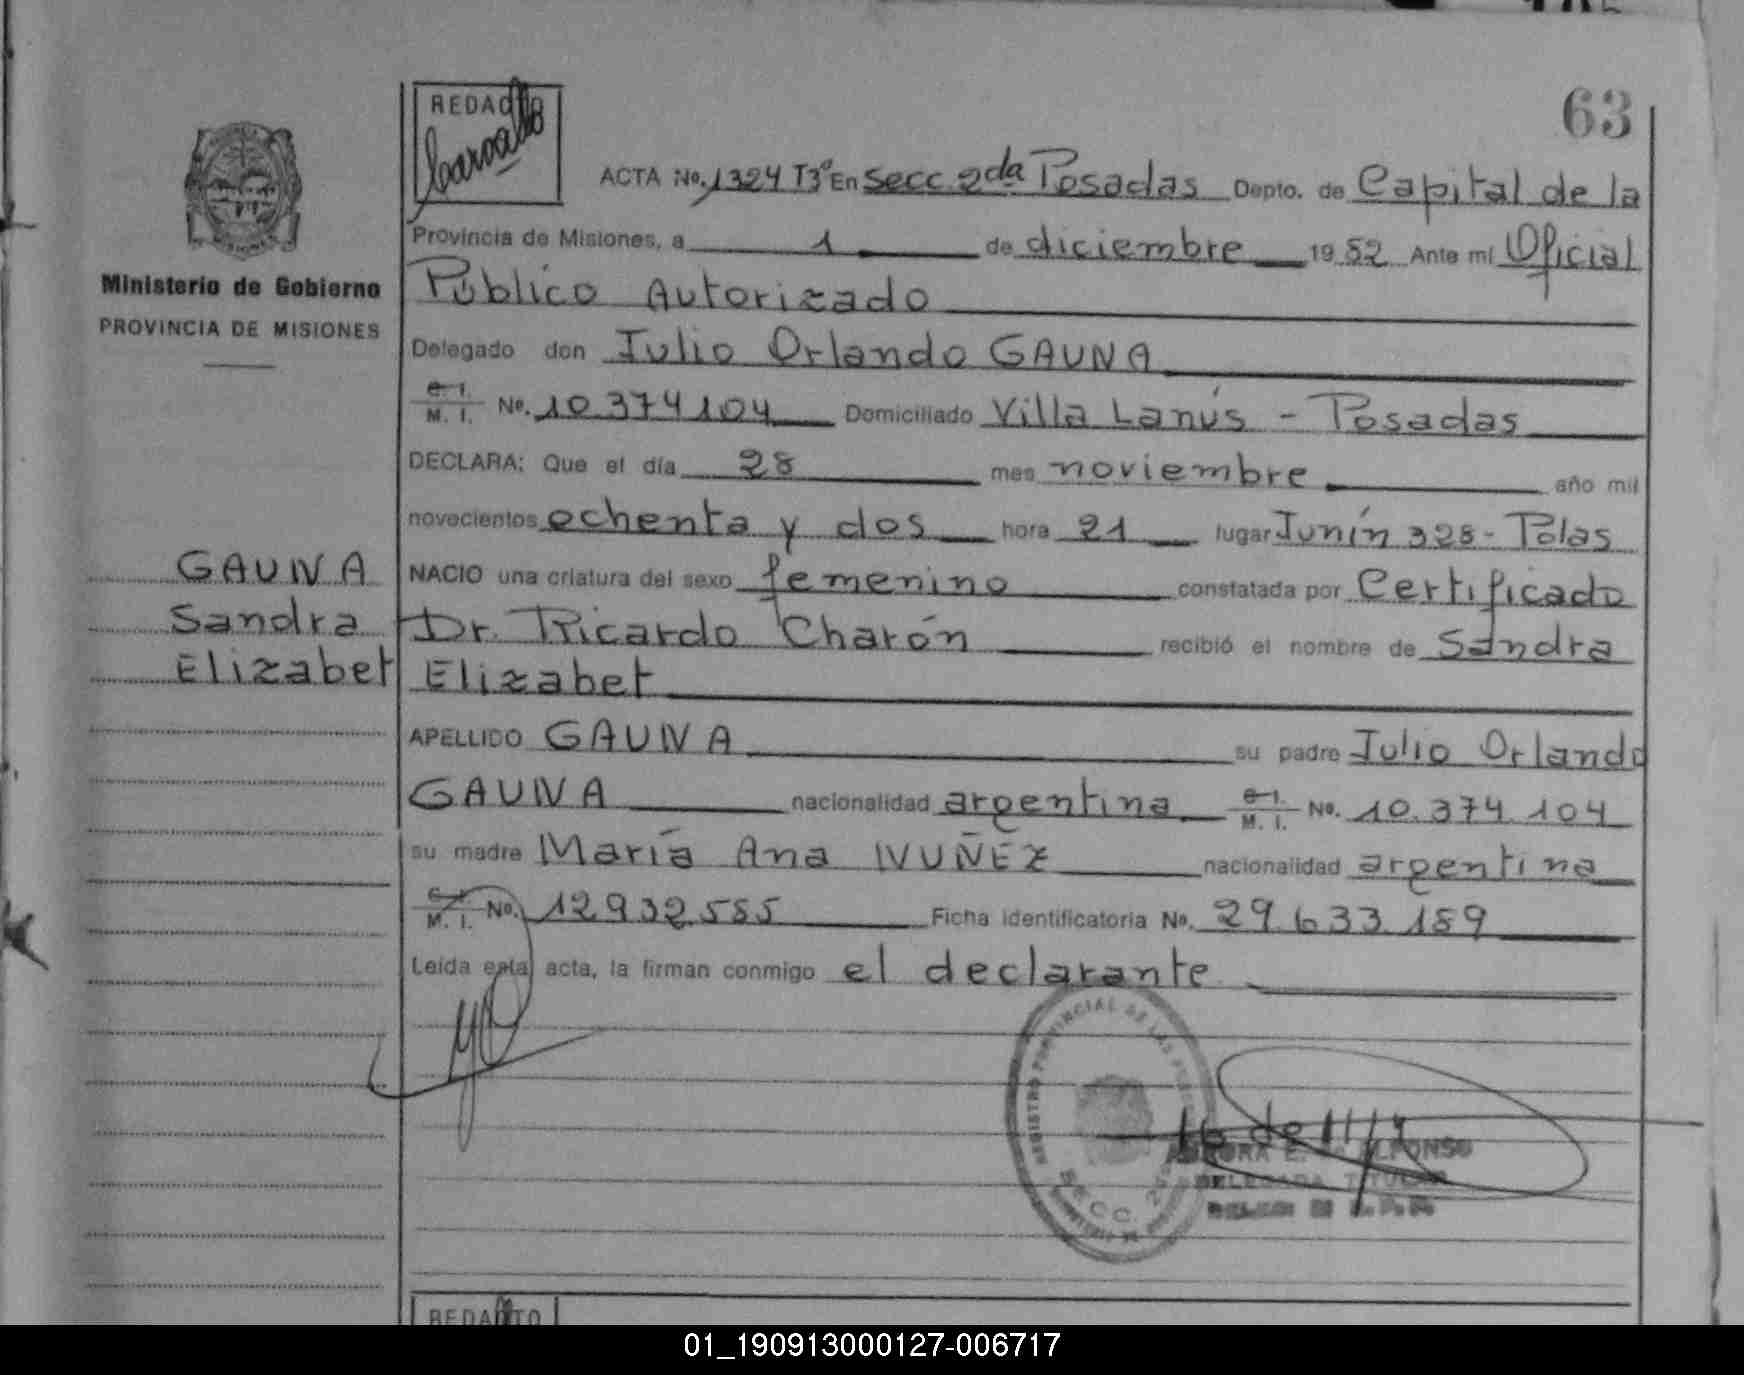 63
REDACTO
Carvallo
ACTA No. 1324 T3º En Secc. 2da Posadas Depto. de Capital de la
Provincia de Misiones, a 1 de diciembre 1952 Ante mi Oficial
Ministerio de Gobierno
PROVINCIA DE MISIONES
Público Autorizado
Delegado don Julio Orlando GAUNA
C. I. M. I. No. 10.374104 Domiciliado Villa Lanús - Posadas
DECLARA: Que el día 28 mes noviembre año mil
novecientos ochenta y dos hora 21 lugar Junín 328 - Pdas
GAUNA
Sandra
Elizabet
NACIO una criatura del sexo femenino constatada por Certificado
Dr. Ricardo Charón recibió el nombre de Sandra
Elizabet
APELLIDO GAUNA su padre Julio Orlando
GAUNA nacionalidad argentina C. I. M. I. No. 10.374.104
su madre María Ana NUÑEZ nacionalidad argentina
C. I. M. I. No. 12.932.585 Ficha identificatoria No. 29.633.189
Leída esta acta, la firman conmigo el declarante
REGISTRO PROVINCIAL DE LAS PERSONAS
SECC. 2da
DELEGADA TITULAR
REDACTO
01_190913000127-006717